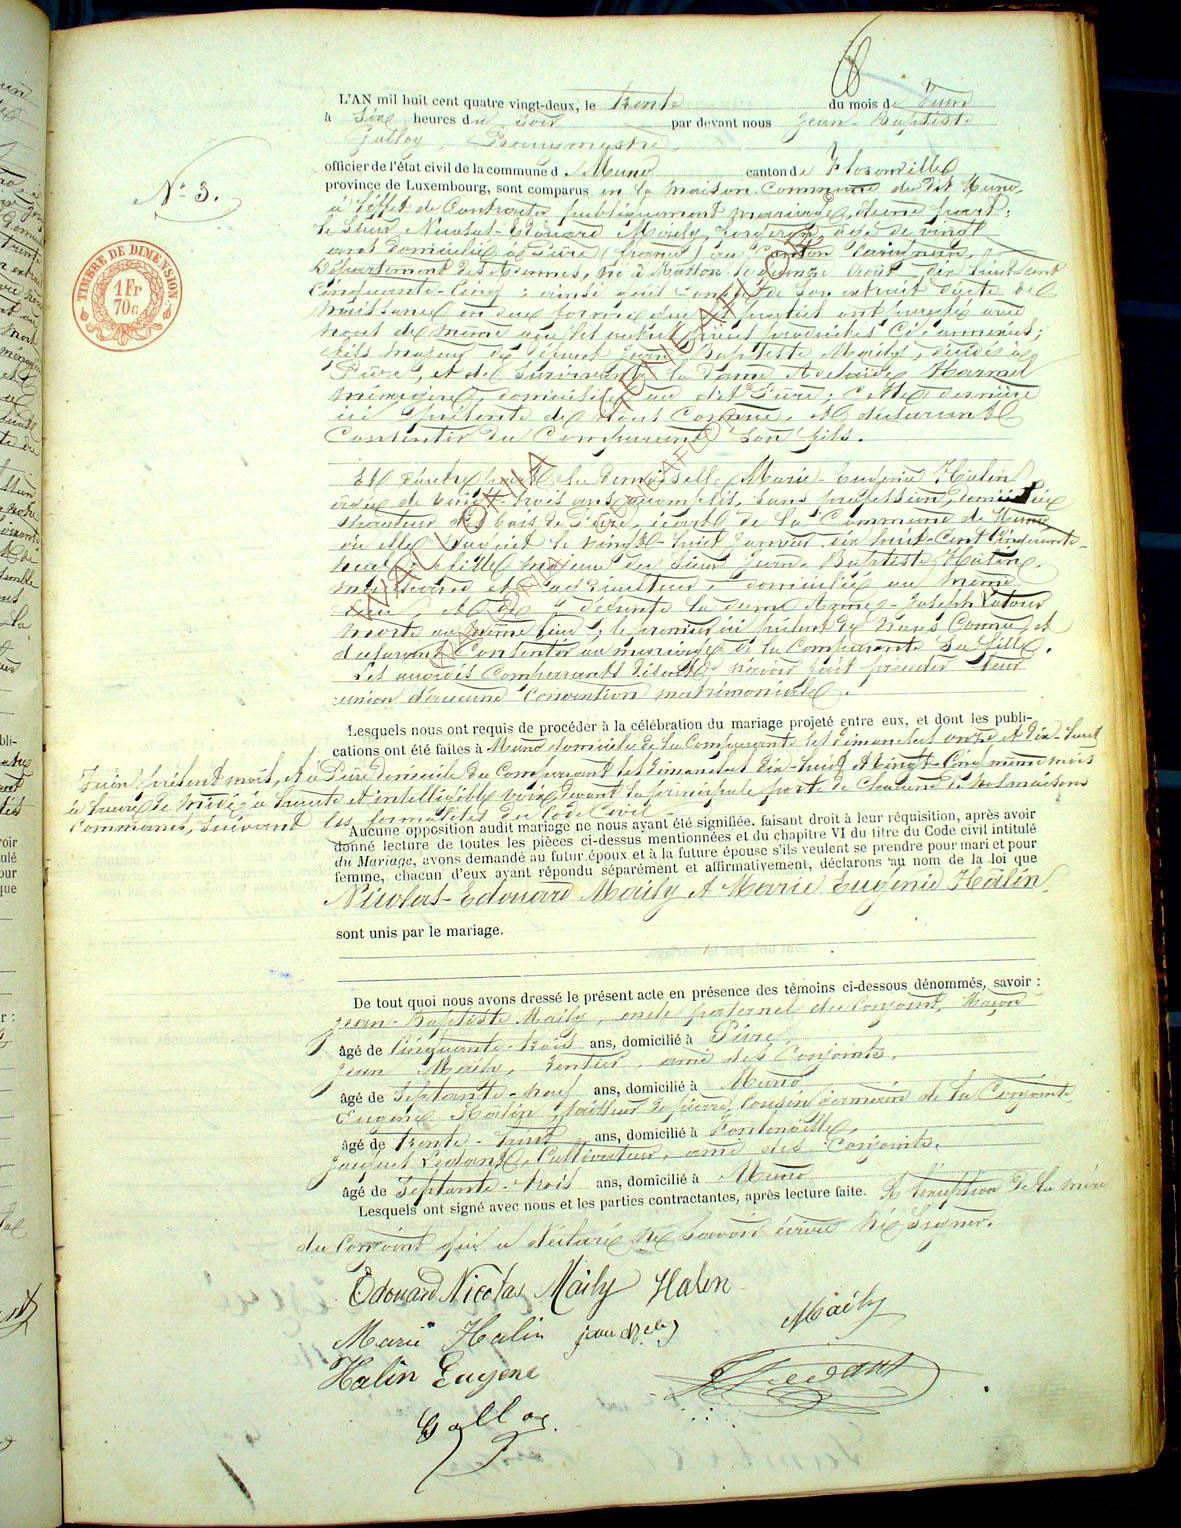 L'AN mil huit cent quatre vingt-deux, le trente du mois de Juin
à Six heures du Soir par devant nous Jean-Baptiste
Galloy, Bourgmestre,
officier de l'état civil de la commune d Muno canton de Florenville
province de Luxembourg, sont comparus en la maison Commune du dit Muno,
N° 3.
TIMBRE DE DIMENSION
1 Fr
70c
à l'effet de Contracter publiquement mariage, d'une part,
le Sieur Nicolas-Edouard Maily, âgé de vingt
ans domicilié à Pure (france) au Canton Carignan,
Département des Ardennes, né à Matton le quinze Août dix huit cent
Cinquante-Cinq ; ainsi qu'il Conste de Son extrait d'acte de
naissance en due forme
nous de même que les autres pièces produites Ci-annexées ;
fils majeur de defunt Jean Baptiste Maily, décédé à
Pure, et de Survivante la Dame Adelaïde Harmel
ménagère, domiciliée au dit Pure ; Cette dernière
ici présente de nous Connue, et déclarant
Consentir du Comparant Son fils.
Et d'autre part la Demoiselle Marie-Eugénie Halin
âgée de vingt trois ans accomplis, Sans profession, domiciliée
hauteur des bois de Pure, écart de la Commune de Muno
où elle naquit le vingt-huit Janvier dix huit-Cent Cinquante-
neuf ; fille majeure du Sieur Jean-Baptiste Halin,
et Agriculteur domicilié au même
lieu, et de défunte la dame Agnes-Joseph Latour
morte au même lieu ; le premier ici présent de nous Connu et
déclarant Consentir au mariage de la Comparante Sa fille.
Les Comparants disent n'avoir fait précéder leur
union d'aucune Convention matrimoniale.
Lesquels nous ont requis de procéder à la célébration du mariage projeté entre eux, et dont les publi-
cations ont été faites à Muno domicile de la Comparante les dimanches onze et dix-huit
Juin présent mois, et à Pure domicile du Comparant les dimanches dix-huit et vingt-Cinq même mois
à heure de midi, à haute et intelligible voix, devant la principale porte de Chacune de nos maisons
Communes, Suivant les formalités du Code Civil.
Aucune opposition audit mariage ne nous ayant été signifiée, faisant droit à leur réquisition, après avoir
donné lecture de toutes les pièces ci-dessus mentionnées et du chapitre VI du titre du Code civil intitulé
du Mariage, avons demandé au futur époux et à la future épouse s'ils veulent se prendre pour mari et pour
femme, chacun d'eux ayant répondu séparément et affirmativement, déclarons au nom de la loi que
Nicolas-Edouard Maily et Marie Eugénie Halin
sont unis par le mariage.
De tout quoi nous avons dressé le présent acte en présence des témoins ci-dessous dénommés, savoir :
Jean-Baptiste Maily, oncle paternel du Conjoint, Maçon
âgé de Cinquante-trois ans, domicilié à Pure,
Jean Maily, Rentier, ami des Conjoints,
âgé de Septante-neuf ans, domicilié à Muno
Eugène Halin, tailleur de pierre, Cousin Germain de la Conjointe
âgé de trente-huit ans, domicilié à Fontenoille,
Jacques Ledant, Cultivateur, ami des Conjoints,
âgé de Septante-trois ans, domicilié à Muno
Lesquels ont signé avec nous et les parties contractantes, après lecture faite. A l'exception de la mère
du Conjoint qui a déclaré ne Savoir écrire ni Signer.
Edouard Nicolas Maily Halin
Marie Halin Maily
Halin Eugene Ledant
Galloy
WALLONIA GENEAFLO
WALLONIA GENEAFLO